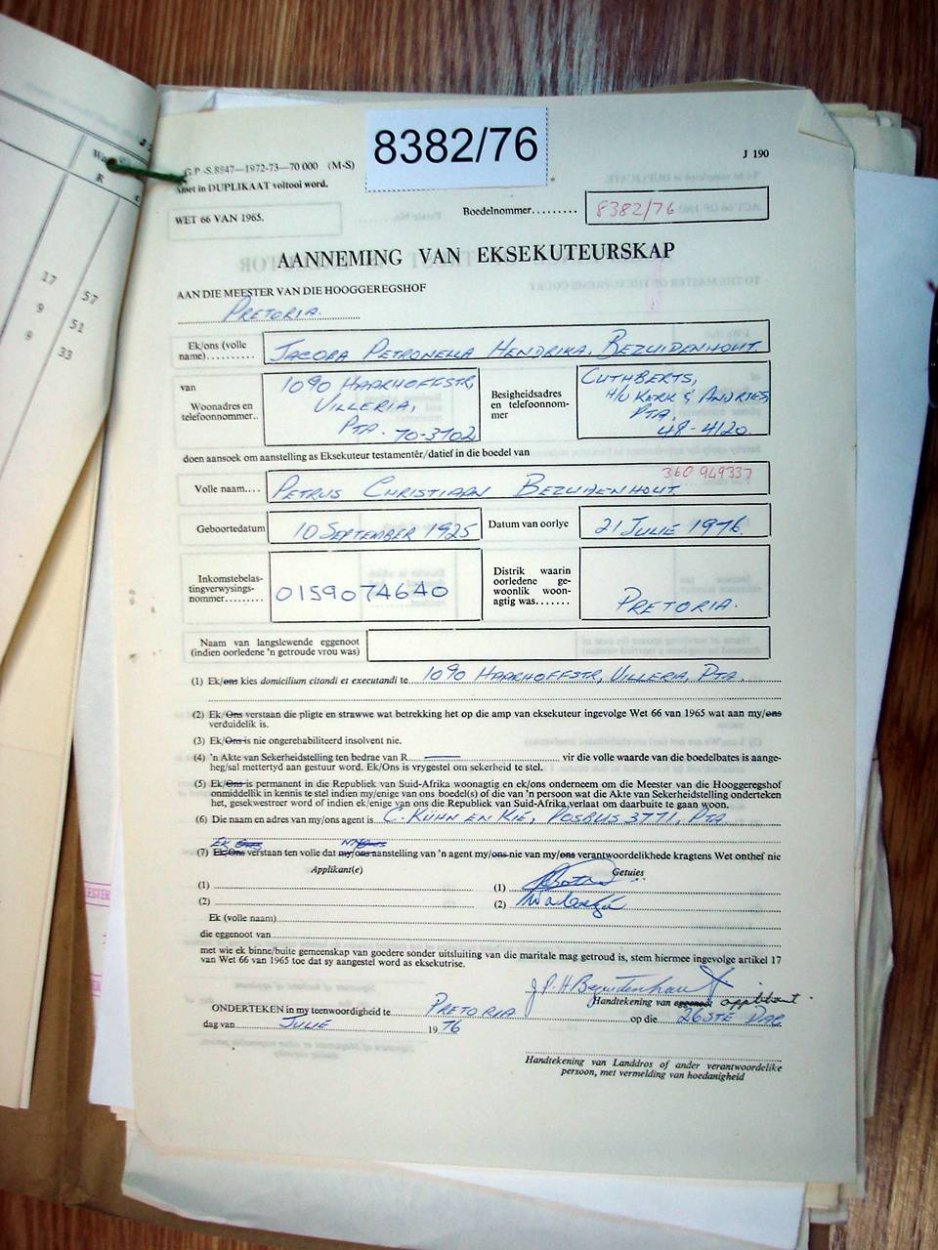 8382/76
J 190
G.P.-S.8947—1972-73—70 000 (M-S)
Moet in DUPLIKAAT voltooi word.
WET 66 VAN 1965.
Boedelnommer......... 8382/76
AANNEMING VAN EKSEKUTEURSKAP
AAN DIE MEESTER VAN DIE HOOGGEREGSHOF
PRETORIA.
Ek/ons (volle name).......... JACOBA PETRONELLA HENDRIKA, BEZUIDENHOUT.
van
Woonadres en telefoonnommer..
1090 HAARHOFFSTR,
VILLERIA,
PTA. 70-3702
Besigheidsadres en telefoonnommer
CUTHBERTS,
H/V KERK & ANDRIES
PTA.
48-4120.
doen aansoek om aanstelling as Eksekuteur testamentêr/datief in die boedel van
360 949337
Volle naam.... PETRUS CHRISTIAAN BEZUIDENHOUT.
Geboortedatum 10 SEPTEMBER 1925 Datum van oorlye 21 JULIE 1976.
Inkomstebelastingverwysingsnommer......... 0159074640
Distrik waarin oorledene gewoonlik woonagtig was....... PRETORIA.
Naam van langslewende eggenoot
(indien oorledene 'n getroude vrou was)
(1) Ek/ons kies domicilium citandi et executandi te 1090 HAARHOFFSTR, VILLERIA, PTA.
(2) Ek/Ons verstaan die pligte en strawwe wat betrekking het op die amp van eksekuteur ingevolge Wet 66 van 1965 wat aan my/ons
verduidelik is.
(3) Ek/Ons is nie ongerehabiliteerd insolvent nie.
(4) 'n Akte van Sekerheidstelling ten bedrae van R........ vir die volle waarde van die boedelbates is aange-
heg/sal mettertyd aan gestuur word. Ek/Ons is vrygestel om sekerheid te stel.
(5) Ek/Ons is permanent in die Republiek van Suid-Afrika woonagtig en ek/ons onderneem om die Meester van die Hooggeregshof
onmiddellik in kennis te stel indien my/enige van ons boedel(s) of die van 'n persoon wat die Akte van Sekerheidstelling onderteken
het, gesekwestreer word of indien ek/enige van ons die Republiek van Suid-Afrika verlaat om daarbuite te gaan woon.
(6) Die naam en adres van my/ons agent is C. KÜHN EN KIE, POSBUS 3771, PTA
(7) Ek/Ons verstaan ten volle dat my/ons aanstelling van 'n agent my/ons nie van my/ons verantwoordelikhede kragtens Wet onthef nie
Applikant(e) Getuies
(1) (1)
(2) (2)
Ek (volle naam)
die eggenoot van
met wie ek binne/buite gemeenskap van goedere sonder uitsluiting van die maritale mag getroud is, stem hiermee ingevolge artikel 17
van Wet 66 van 1965 toe dat sy aangestel word as eksekutrise.
J.P.H Bezuidenhout
Handtekening van eggenoot applikant.
ONDERTEKEN in my teenwoordigheid te PRETORIA op die 26STE DAG
dag van JULIE 1976
Handtekening van Landdros of ander verantwoordelike
persoon, met vermelding van hoedanigheid
17 57
9 51
9 33